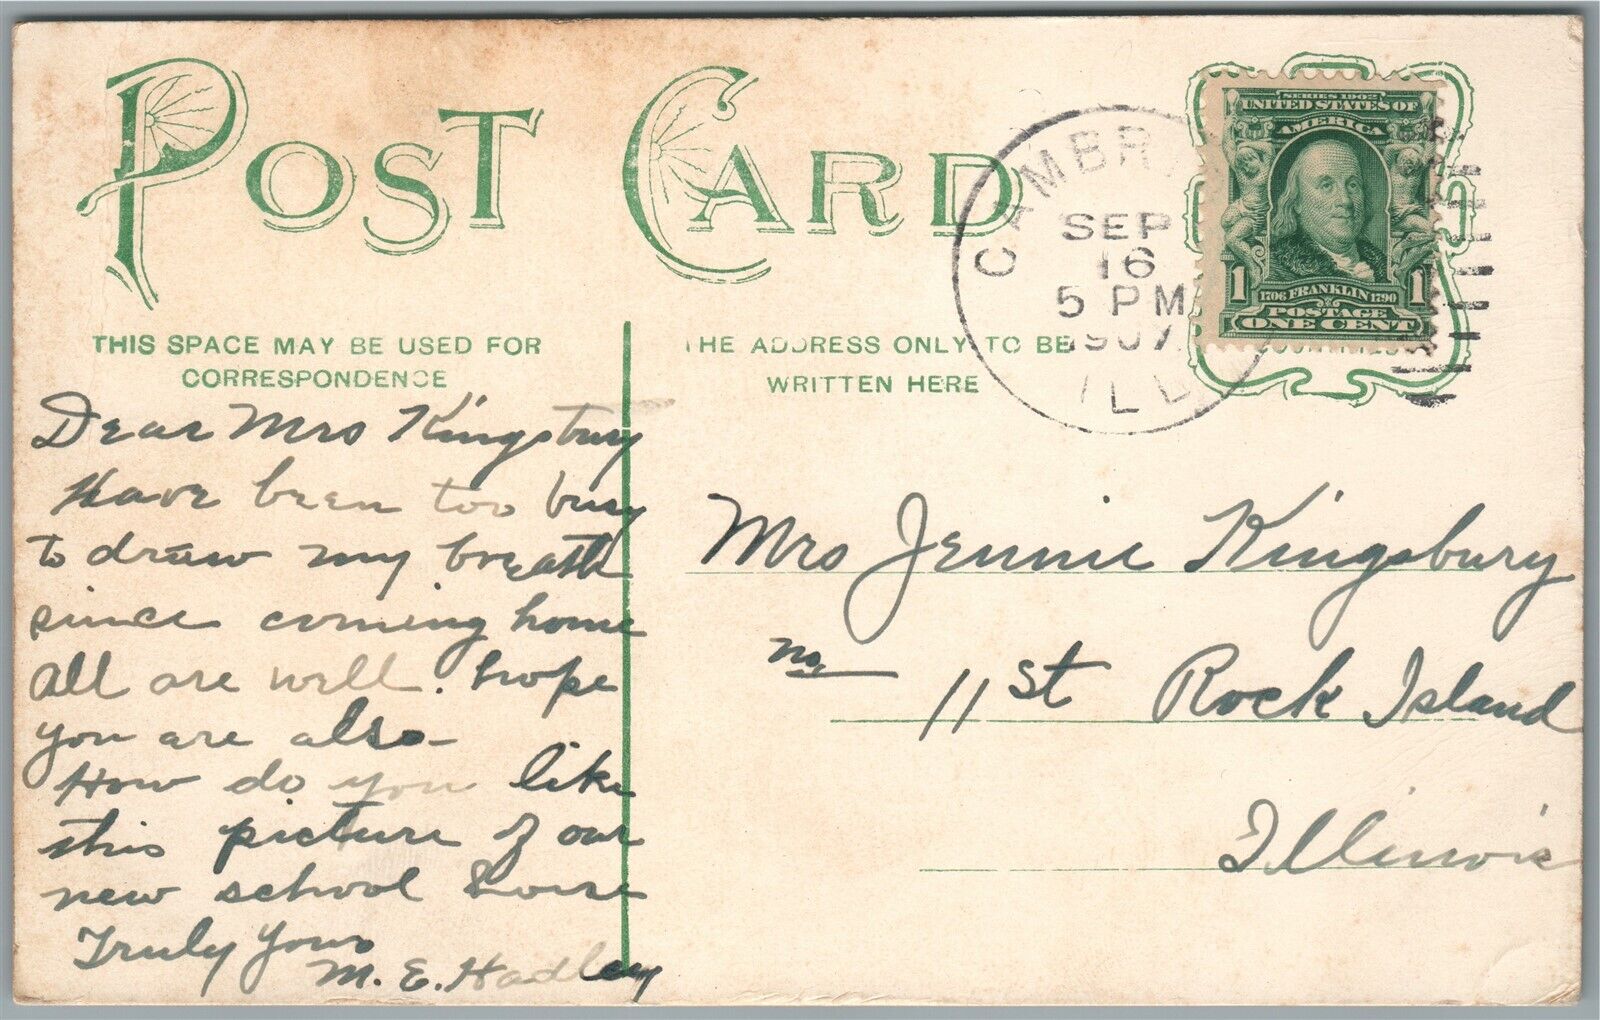 POST CARD
THIS SPACE MAY BE USED FOR
CORRESPONDENCE
THE ADDRESS ONLY TO BE
WRITTEN HERE
CAMBR
SEP
16
5 PM
1907
ILL
SERIES 1902
UNITED STATES OF
AMERICA
1 1
1706 FRANKLIN 1790
POSTAGE
ONE CENT
Dear Mrs Kingsbury
Have been too busy
to draw my breath
since coming home
all are well. hope
you are also-
How do you like
this picture of our
new school house
Truly Yours
M. E. Hadley
Mrs Jennie Kingsbury
no. 11 St Rock Island
Illinois